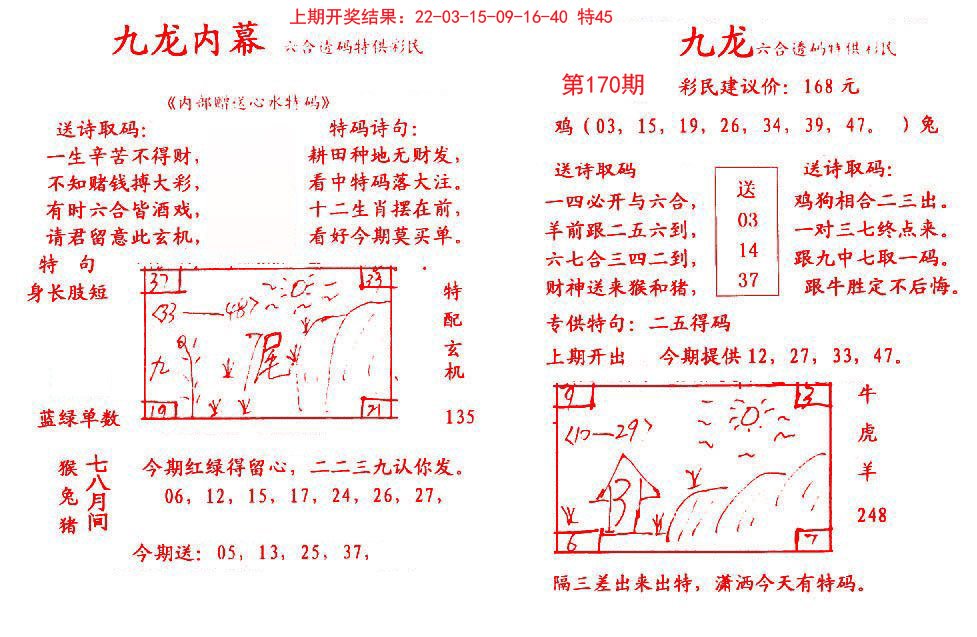 上期开奖结果：22-03-15-09-16-40 特45
九龙内幕 六合透码特供彩民
《内部赠送心水特码》
送诗取码：
一生辛苦不得财，
不知赌钱搏大彩，
有时六合皆酒戏，
请君留意此玄机，
特码诗句：
耕田种地无财发，
看中特码落大注。
十二生肖摆在前，
看好今期莫买单。
特 句
身长肢短
蓝绿单数
37
33
〈33——48〉
九
7尾
19
21
特配玄机
135
猴兔猪
七八月间
今期红绿得留心，二二三九认你发。
06，12，15，17，24，26，27，
今期送：05，13，25，37，
九龙 六合透码特供彩民
第170期 彩民建议价：168元
鸡（03，15，19，26，34，39，47。 ）兔
送诗取码
一四必开与六合，
羊前跟二五六到，
六七合三四二到，
财神送来猴和猪，
送
03
14
37
送诗取码：
鸡狗相合二三出。
一对三七终点来。
跟九中七取一码。
跟牛胜定不后悔。
专供特句：二五得码
上期开出 今期提供12，27，33，47。
9
3
〈10—29〉
3
6
7
牛
虎
羊
248
隔三差出来出特，潇洒今天有特码。